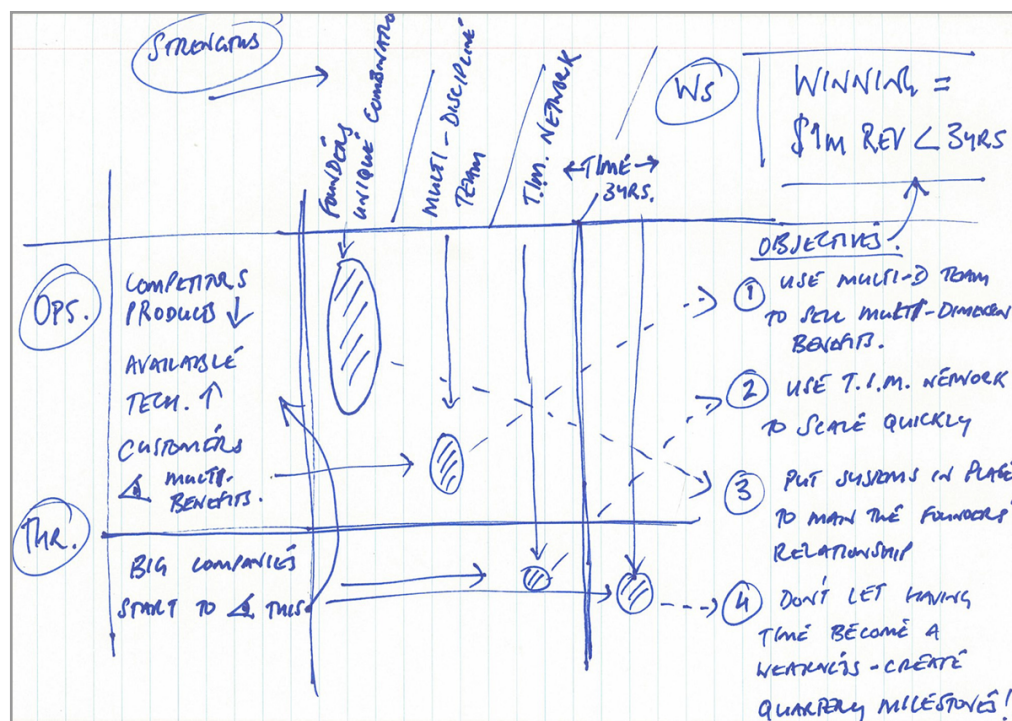 STRENGTHS
FOUNDERS
UNIQUE COMBINATIO
MULTI-DISCIPLINE
TEAM
T.I.M. NETWORK
←TIME→
3YRS.
WS
WINNING =
$1M REV < 3YRS
OPS.
COMPETITORS
PRODUCTS ↓
AVAILABLE
TECH. ↑
CUSTOMERS
MULTI-
BENEFITS.
THR.
BIG COMPANIES
START TO THIS
OBJECTIVES:
1 USE MULTI-D TEAM
TO SELL MULTI-DIMENSION
BENEFITS.
2 USE T.I.M. NETWORK
TO SCALE QUICKLY
3 PUT SYSTEMS IN PLACE
TO MAN THE FOUNDERS'
RELATIONSHIP
4 DON'T LET HAVING
TIME BECOME A
WEAKNESS - CREATE
QUARTERLY MILESTONES!